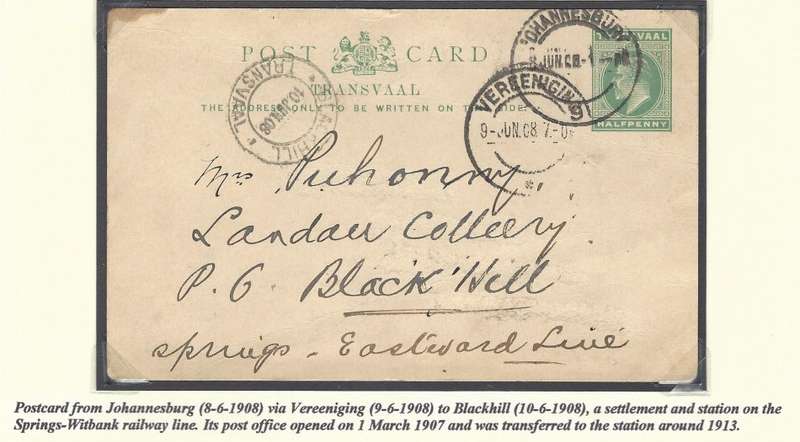 POST CARD
TRANSVAAL
THE ADDRESS ONLY TO BE WRITTEN ON THIS SIDE.
TRANSVAAL
HALFPENNY
JOHANNESBURG
8 JUN 08
VEREENIGING
9-JUN.08 7-0
BLACKHILL
10 JUN 08
TRANSVAAL
Mrs Puhonny,
Landau Colliery
P. O. Black Hill
Springs - Eastward Line
Postcard from Johannesburg (8-6-1908) via Vereeniging (9-6-1908) to Blackhill (10-6-1908), a settlement and station on the
Springs-Witbank railway line. Its post office opened on 1 March 1907 and was transferred to the station around 1913.